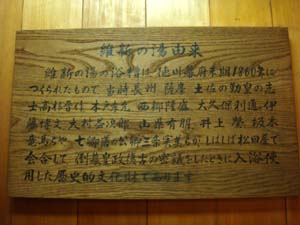 維新の湯由来
維新の湯の浴槽は、徳川幕府末期1860年に
つくられたもので、当時長州 薩摩 土佐の勤皇の志
士高杉晋作 木戸孝允 西郷隆盛 大久保利通 伊
藤博文 大村益次郎 山県有朋 井上馨 坂本
竜馬らや 七卿落の公卿三条実美らが しばしば松田屋で
会合して 倒幕皇政復古の密議をしたときに入浴使
用した歴史的文化財であります